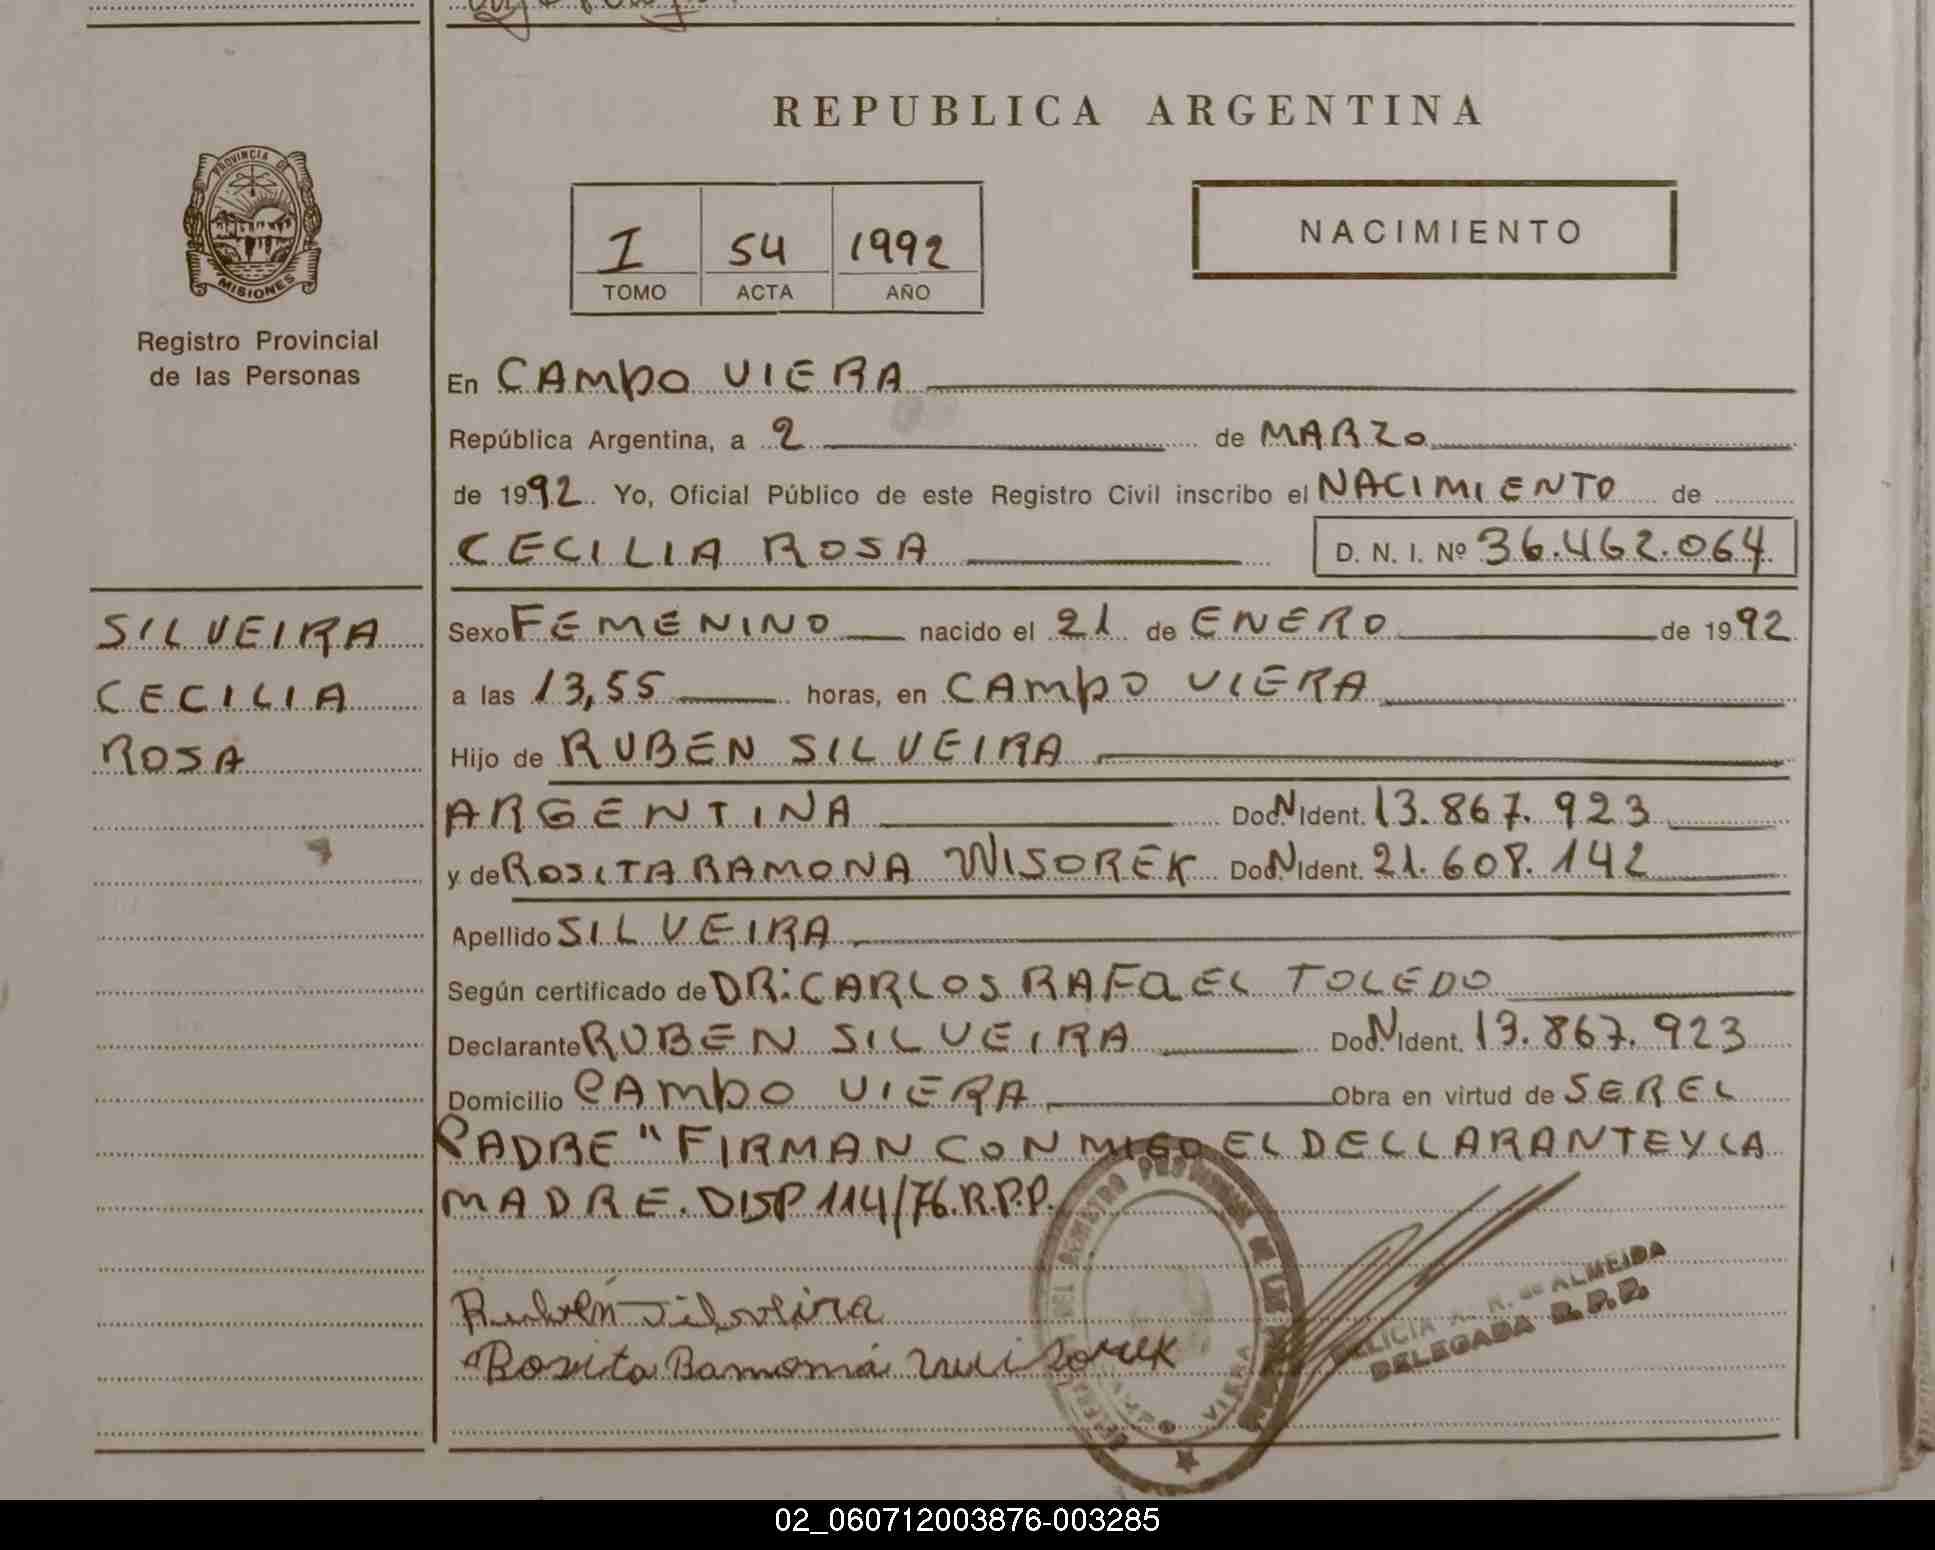 REPUBLICA ARGENTINA
PROVINCIA DE
MISIONES
Registro Provincial
de las Personas
I 54 1992
TOMO ACTA AÑO
NACIMIENTO
En CAMPO VIERA
República Argentina, a 2 de MARZO
de 1992. Yo, Oficial Público de este Registro Civil inscribo el NACIMIENTO de
CECILIA ROSA D. N. I. Nº 36.462.064
SILVEIRA
CECILIA
ROSA
Sexo FEMENINO nacido el 21 de ENERO de 1992
a las 13,55 horas, en CAMPO VIERA
Hijo de RUBEN SILVEIRA
ARGENTINA Doc.N Ident. 13.867.923
y de ROSITA RAMONA WISOREK Doc.N Ident. 21.608.142
Apellido SILVEIRA
Según certificado de DR: CARLOS RAFAEL TOLEDO
Declarante RUBEN SILVEIRA Doc.N Ident. 13.867.923
Domicilio CAMPO VIERA Obra en virtud de SER EL
PADRE " FIRMAN CONMIGO EL DECLARANTE Y LA
MADRE. DISP 114/76.R.P.P.
Rubén Silveira
Rosita Ramona Wisorek
ALMEIDA
DELEGADA R.P.P.
VIERA
02_060712003876-003285